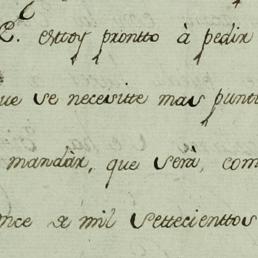 E. esttoy prontto à pedir
ue se necesitte mas puntt
mandàr, que serà, com
nce a mil Settecienttos